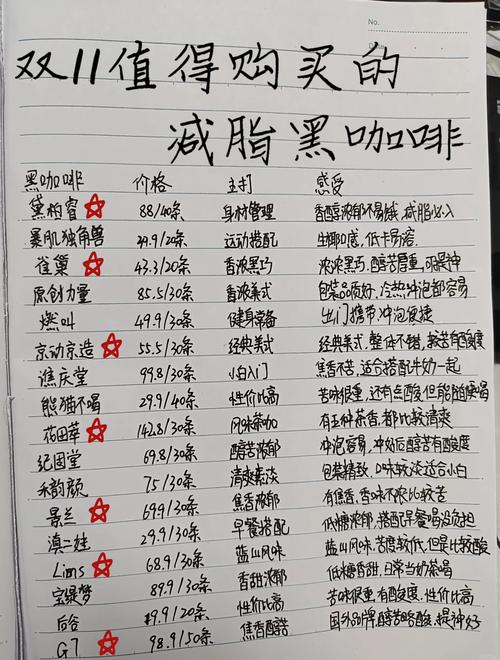 No.
双11值得购买的
减脂黑咖啡
黑咖啡 价格 主打 感受
黛柏睿 88/40条 身材管理 香醇浓郁不易饿,减脂必入
暴肌独角兽 29.9/20条 运动搭配 生椰口感,低卡易溶
雀巢 43.3/20条 香浓黑巧 浓浓黑巧,醇苦厚重,可提神
原创力量 85.5/30条 香浓美式 包装品质好,冷热冲泡都容易
燃叫 49.9/30条 健身常备 出门携带冲泡便捷
京动京造 55.5/30条 经典美式 经典美式,整体不错,较苦有酸度
谯庆堂 99.8/30条 小白入门 焦香不苦,适合搭配牛奶一起
熊猫不喝 29.9/40条 性价比高 苦味很重,还有点酸,但能随便喝
花田萃 142.8/30条 风味茶咖 有五种茶香,都比较清爽
纪图堂 69.8/30条 醇苦浓郁 冲泡容易,冲好后醇苦有酸度
禾韵颜 75/30条 清爽素淡 包装精致,口味较淡适合小白
景兰 699/30条 焦香浓郁 有焦香,香味不浓比较苦
滇二娃 29.9/30条 早餐搭配 低糖浓郁,搭配早餐喝没负担
Lims 68.9/30条 蓝山风味 蓝山风味,苦度较低,但是比较酸
宝缇梦 89.9/30条 香甜浓郁 低糖香甜,日常当奶茶喝
后谷 49.9/20条 性价比高 苦味很重,有酸度,性价比高
G7 98.9/50条 焦香醇苦 国外品牌,醇苦略酸,提神好